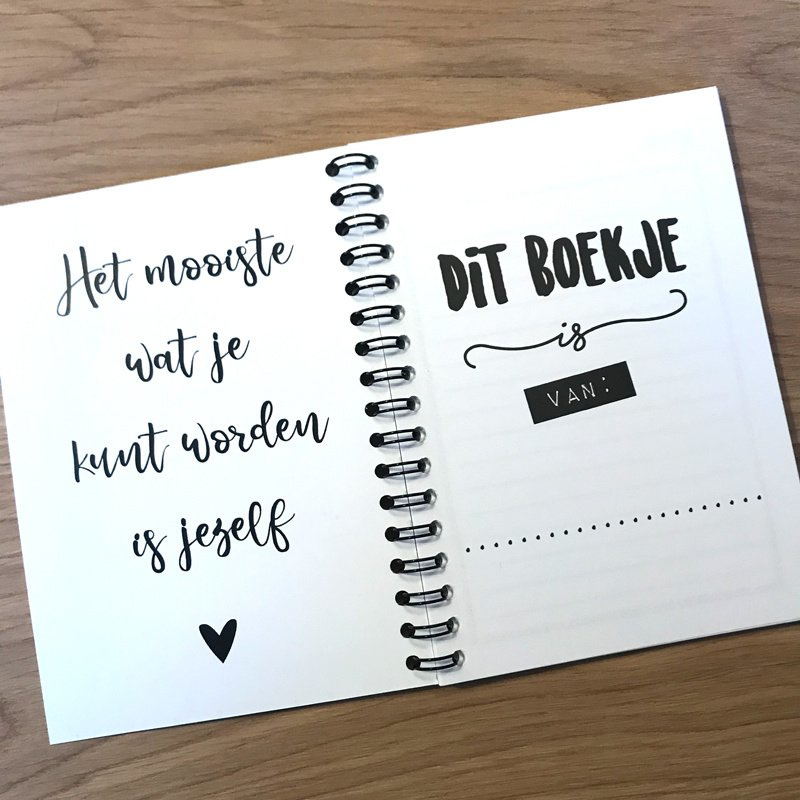 Het mooiste
wat je
kunt worden
is jezelf
DiT BOEKJE
is
VAN: